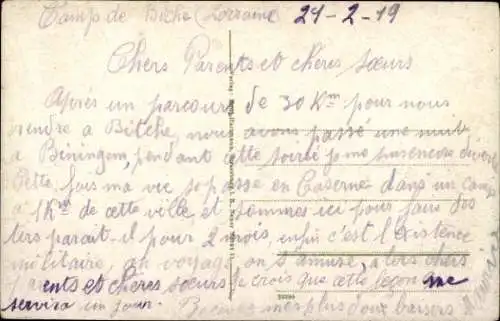 Camp de Bitche (Lorraine) 21-2-19
Chers Parents et chères sœurs
Après un parcours de 30 Km pour nous
rendre a Bitche, nous avons passé une nuit
a Biningen, pendant cette soirée je me suis encore
Cette fois ma vie se passe en Caserne dans un camp
a 1 Km de cette ville et sommes ici pour faire dos
ters parait-il pour 2 mois, enfin c'est l'existence
militaire, on voyage on s'amuse, a lors chers
parents et chères sœurs je crois que cette leçon me
servira un jour. mes plus doux baisers